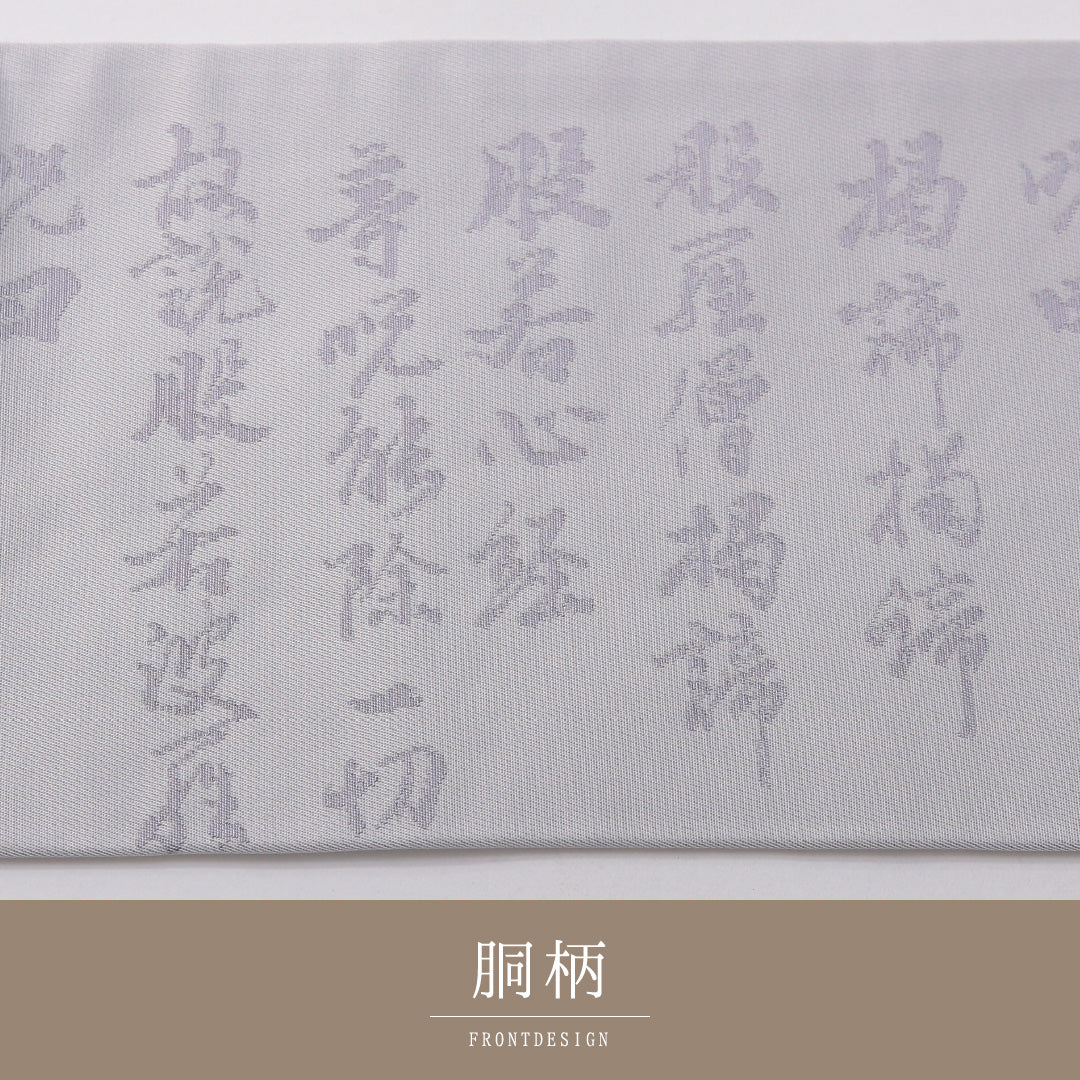 揭諦揭諦
般羅僧揭諦
般若心経
等呪能除一切
故説般若波羅
呪曰
胴柄
FRONTDESIGN